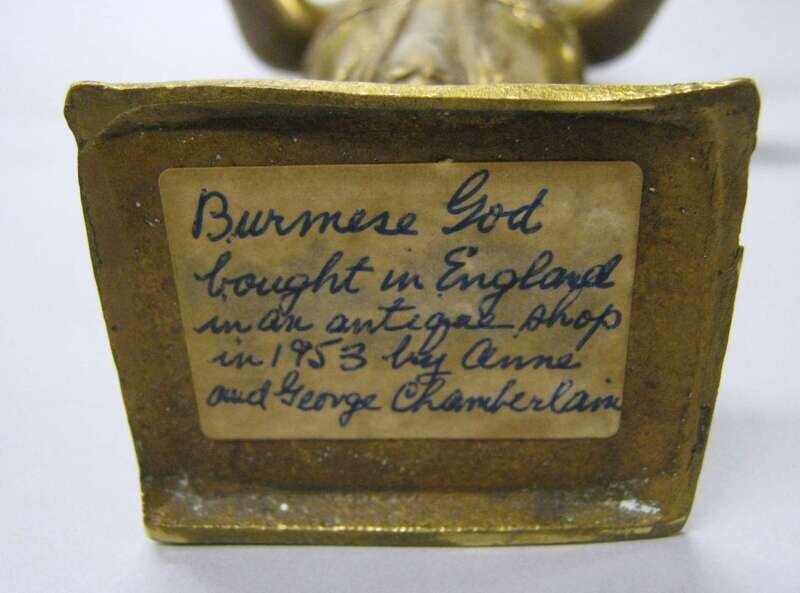 Burmese God
bought in England
in an antique shop
in 1953 by Anne
and George Chamberlain